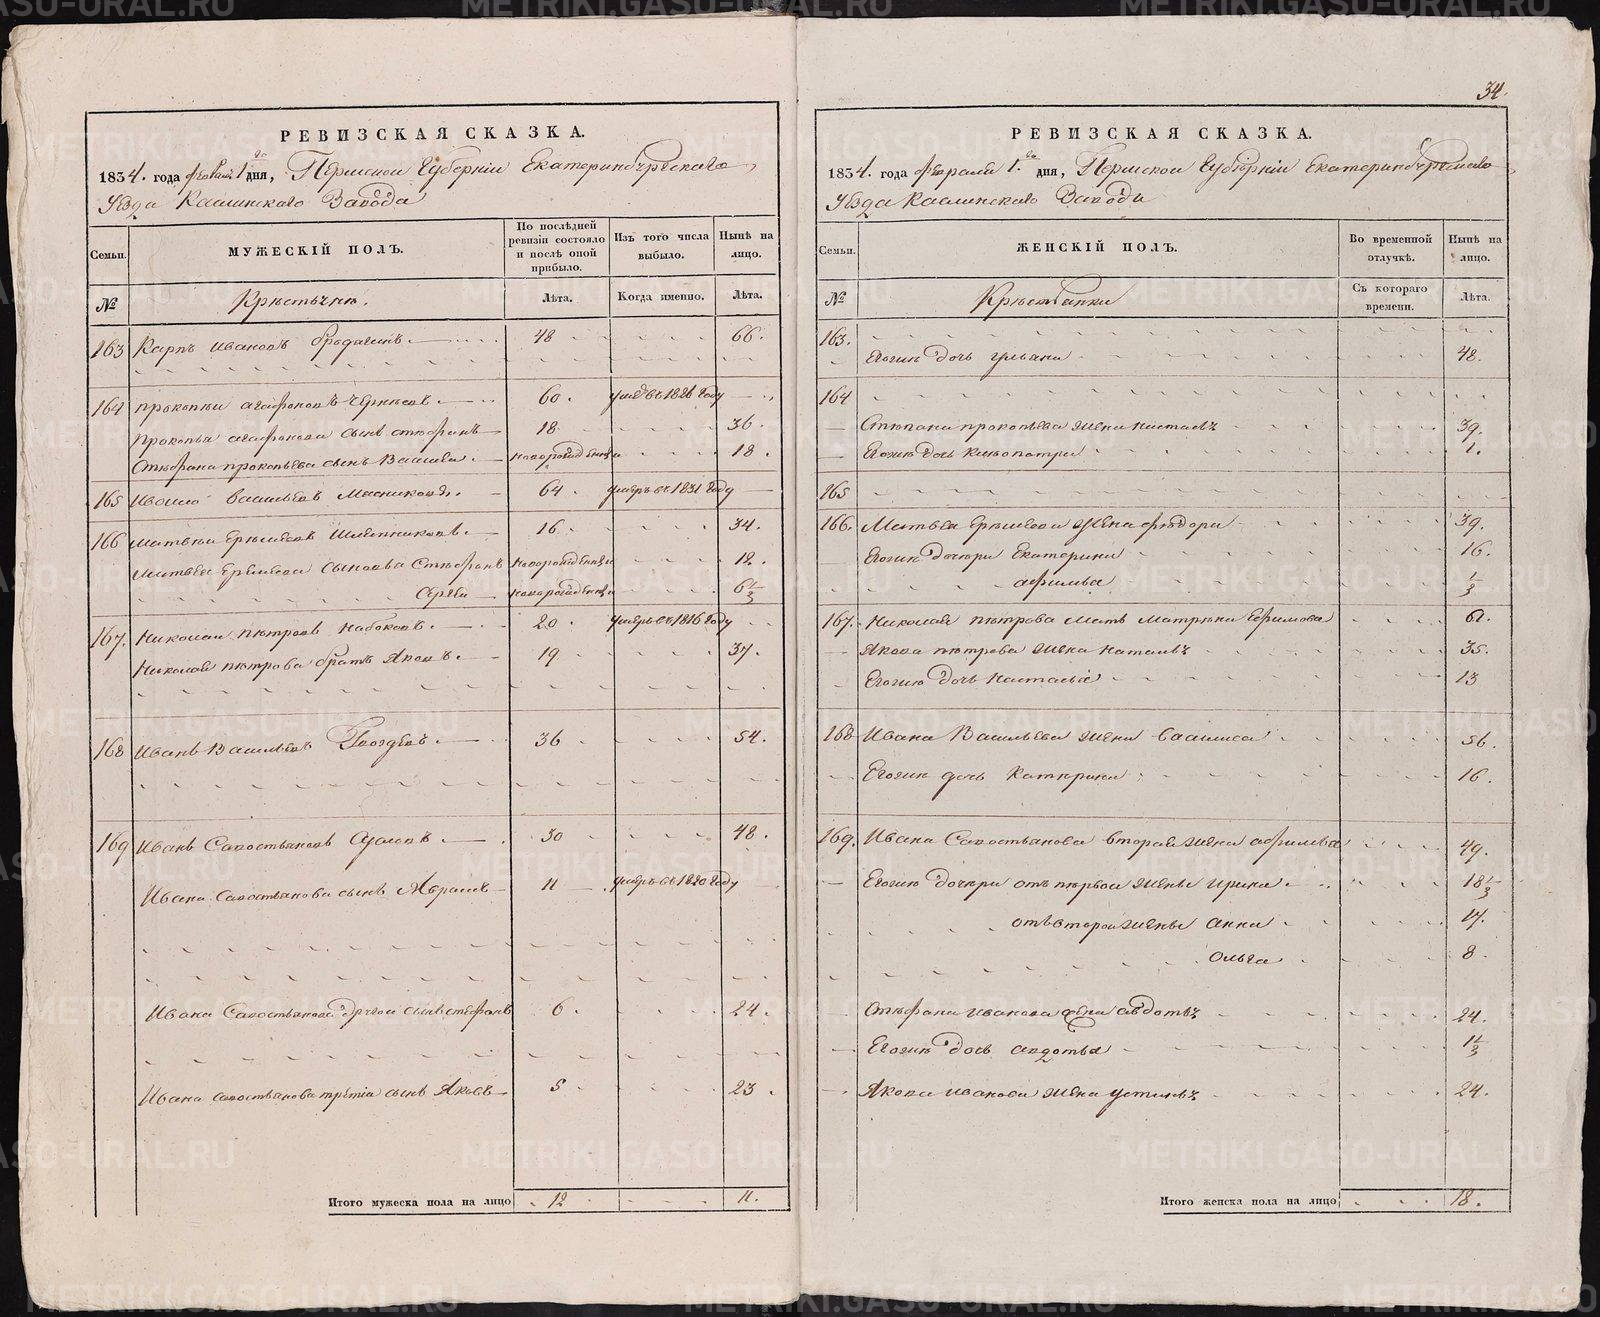 34.
РЕВИЗСКАЯ СКАЗКА.
1834. года февраля 1го дня, Пермской Губернiи Екатеринбургскаго
Уѣзда Каслинскаго Завода
Семьи.
МУЖЕСКIЙ ПОЛЪ.
По послѣдней ревизiи состояло и послѣ оной прибыло.
Изъ того числа выбыло.
Нынѣ на лицо.
№
Крестьяне.
Лѣта.
Когда именно.
Лѣта.
163 Карпъ Ивановъ 48 66.
164 Прокопей Агафоновъ 60. умре въ 1826 году
Прокопья Агафонова сынъ Стефанъ 18 36.
Стефана Прокопьева сынъ Василей новорожденной 18.
165 Васильевъ Мясниковъ. 64. умеръ въ 1831 году
166 Матвей Еремеевъ 16. 34.
Матвея Еремеева сыновья Стефанъ новорожденной 12.
Сергей новорожденной 6 1/3
167. Николай Петровъ Набоковъ. 20. умеръ въ 1816 году
Николая Петрова братъ Яковъ. 19 37.
168 Иванъ Васильевъ Гвоздевъ. 36 54.
169 Иванъ Савостьяновъ 30 48.
Ивана Савостьянова сынъ Абрамъ 11 умеръ въ 1820 году
Ивана Савостьянова другой сынъ Стефанъ 6. 24.
Ивана Савостьянова третiй сынъ Яковъ 5 23.
Итого мужеска пола на лицо 12 11.
РЕВИЗСКАЯ СКАЗКА.
1834. года февраля 1.го дня, Пермской Губернiи Екатеринбургскаго
Уѣзда Каслинскаго Завода
Семьи.
ЖЕНСКIЙ ПОЛЪ.
Во временной отлучкѣ.
Нынѣ на лицо.
№
Крестьянки
Съ котораго времени.
Лѣта.
163.
Егоже дочь Ульяна 48.
164
Степана Прокопьева жена Настасья 39.
Егоже дочь 1.
165
166. Матвея Еремеева жена Федора 39.
Егоже дочери Екатерина 16.
Афимья 1/3
167. Николая Петрова мать Матрена Ефимова 61.
Якова Петрова жена Наталья 35.
Егоже дочь Настасiя 13
168 Ивана Васильева жена Василиса 56.
Егоже дочь Катерина 16.
169. Ивана Савостьянова вторая жена Афимья 49.
Егоже дочери отъ первой жены Ирина 18 1/3
отъ второй жены Анна 17.
Ольга 8.
Стефана Иванова жена Авдотья 24.
Егоже дочь Авдотья 1 1/3
Якова Иванова жена Устинья 24.
Итого женска пола на лицо 18.
METRIKI.GASO-URAL.RU